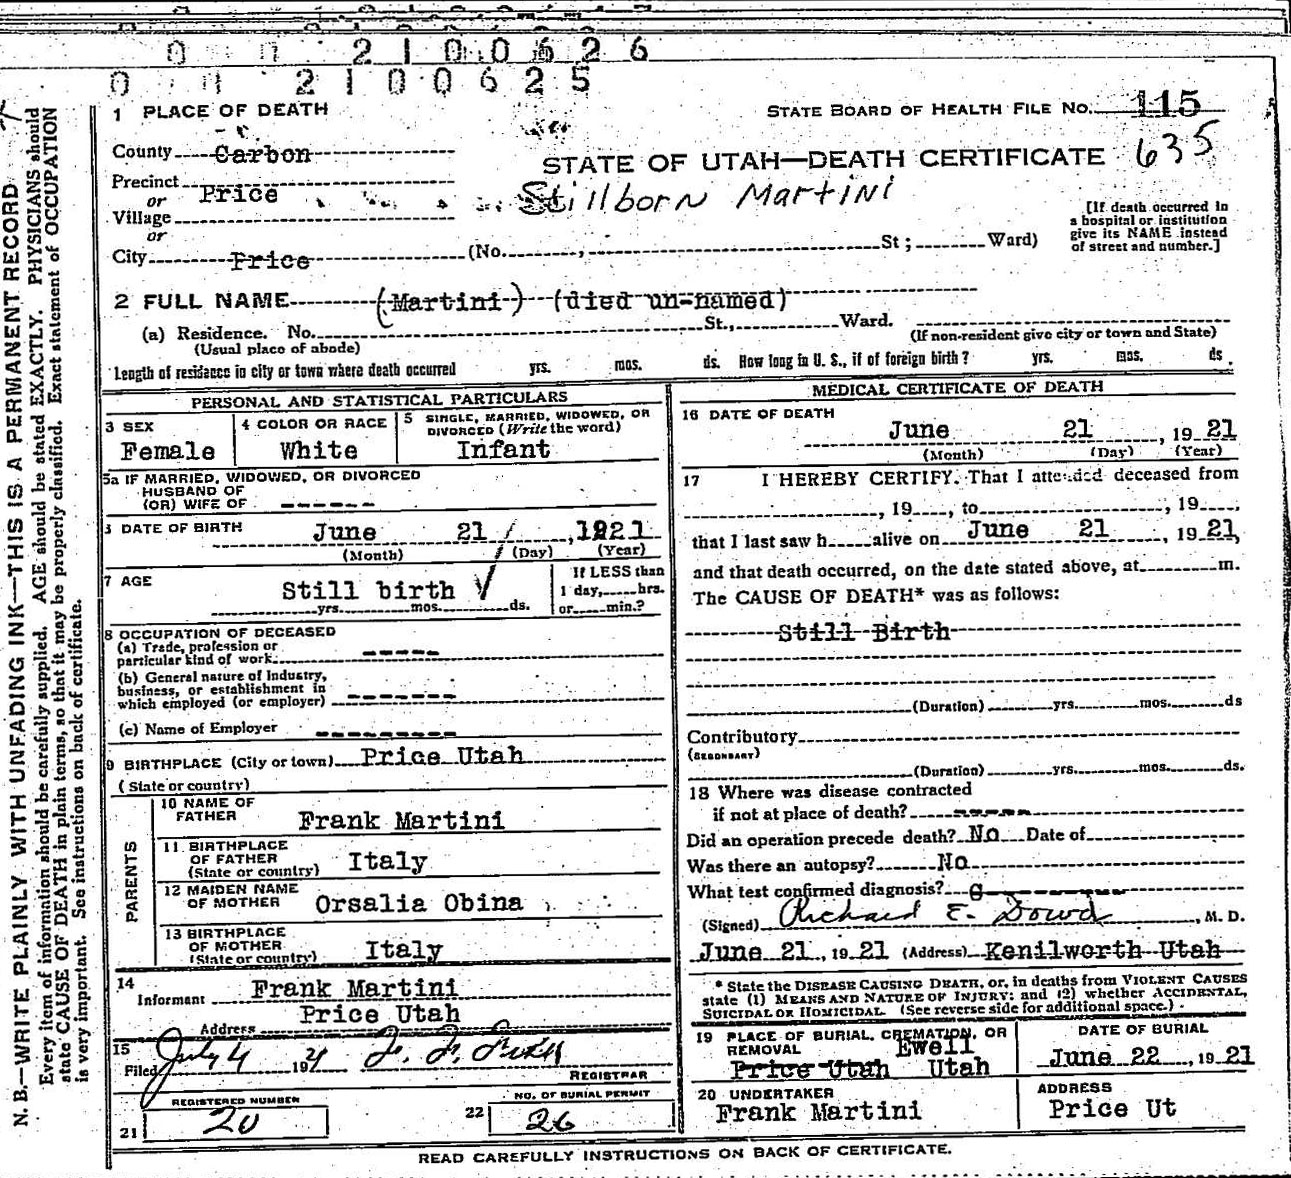 2100626
2100625
1 PLACE OF DEATH
STATE BOARD OF HEALTH FILE No. 115
County Carbon
STATE OF UTAH—DEATH CERTIFICATE 635
Precinct Price
or
Stillborn Martini
Village
or
City Price (No. , St ; Ward)
[If death occurred in
a hospital or institution
give its NAME instead
of street and number.]
2 FULL NAME (Martini) (died un-named)
(a) Residence. No. St., Ward.
(Usual place of abode) (If non-resident give city or town and State)
Length of residence in city or town where death occurred yrs. mos. ds. How long in U. S., if of foreign birth? yrs. mos. ds
PERSONAL AND STATISTICAL PARTICULARS
3 SEX Female
4 COLOR OR RACE White
5 SINGLE, MARRIED, WIDOWED, OR
DIVORCED (Write the word)
Infant
5a IF MARRIED, WIDOWED, OR DIVORCED
HUSBAND OF
(OR) WIFE OF -----
DATE OF BIRTH June 21 , 1921
(Month) (Day) (Year)
7 AGE Still birth
yrs. mos. ds.
If LESS than
1 day, hrs.
or min.?
8 OCCUPATION OF DECEASED
(a) Trade, profession or
particular kind of work
(b) General nature of Industry,
business, or establishment in
which employed (or employer)
(c) Name of Employer
9 BIRTHPLACE (City or town) Price Utah
(State or country)
PARENTS
10 NAME OF
FATHER Frank Martini
11 BIRTHPLACE
OF FATHER
(State or country) Italy
12 MAIDEN NAME
OF MOTHER Orsalia Obina
13 BIRTHPLACE
OF MOTHER
(State or country) Italy
14
Informant Frank Martini
Address Price Utah
15
Filed July 4 1921
REGISTRAR
REGISTERED NUMBER
21 20
NO. OF BURIAL PERMIT
22 26
MEDICAL CERTIFICATE OF DEATH
16 DATE OF DEATH
June 21 , 19 21
(Month) (Day) (Year)
17 I HEREBY CERTIFY. That I attended deceased from
, 19 , to , 19 ,
that I last saw h alive on June 21 , 19 21,
and that death occurred, on the date stated above, at m.
The CAUSE OF DEATH* was as follows:
Still Birth
(Duration) yrs. mos. ds
Contributory
(SECONDARY)
(Duration) yrs. mos. ds.
18 Where was disease contracted
if not at place of death? -----
Did an operation precede death? No Date of
Was there an autopsy? No
What test confirmed diagnosis?
(Signed) Richard E. Dowd , M. D.
June 21 , 19 21 (Address) Kenilworth Utah
* State the DISEASE CAUSING DEATH, or, in deaths from VIOLENT CAUSES
state (1) MEANS AND NATURE OF INJURY; and (2) whether ACCIDENTAL,
SUICIDAL OR HOMICIDAL. (See reverse side for additional space.)
19 PLACE OF BURIAL, CREMATION, OR
REMOVAL Ewell
Price Utah Utah
DATE OF BURIAL
June 22 , 19 21
20 UNDERTAKER
Frank Martini
ADDRESS
Price Ut
READ CAREFULLY INSTRUCTIONS ON BACK OF CERTIFICATE.
N. B.—WRITE PLAINLY WITH UNFADING INK—THIS IS A PERMANENT RECORD
Every item of information should be carefully supplied. AGE should be stated EXACTLY. PHYSICIANS should
state CAUSE OF DEATH in plain terms, so that it may be properly classified. Exact statement of OCCUPATION
is very important. See instructions on back of certificate.